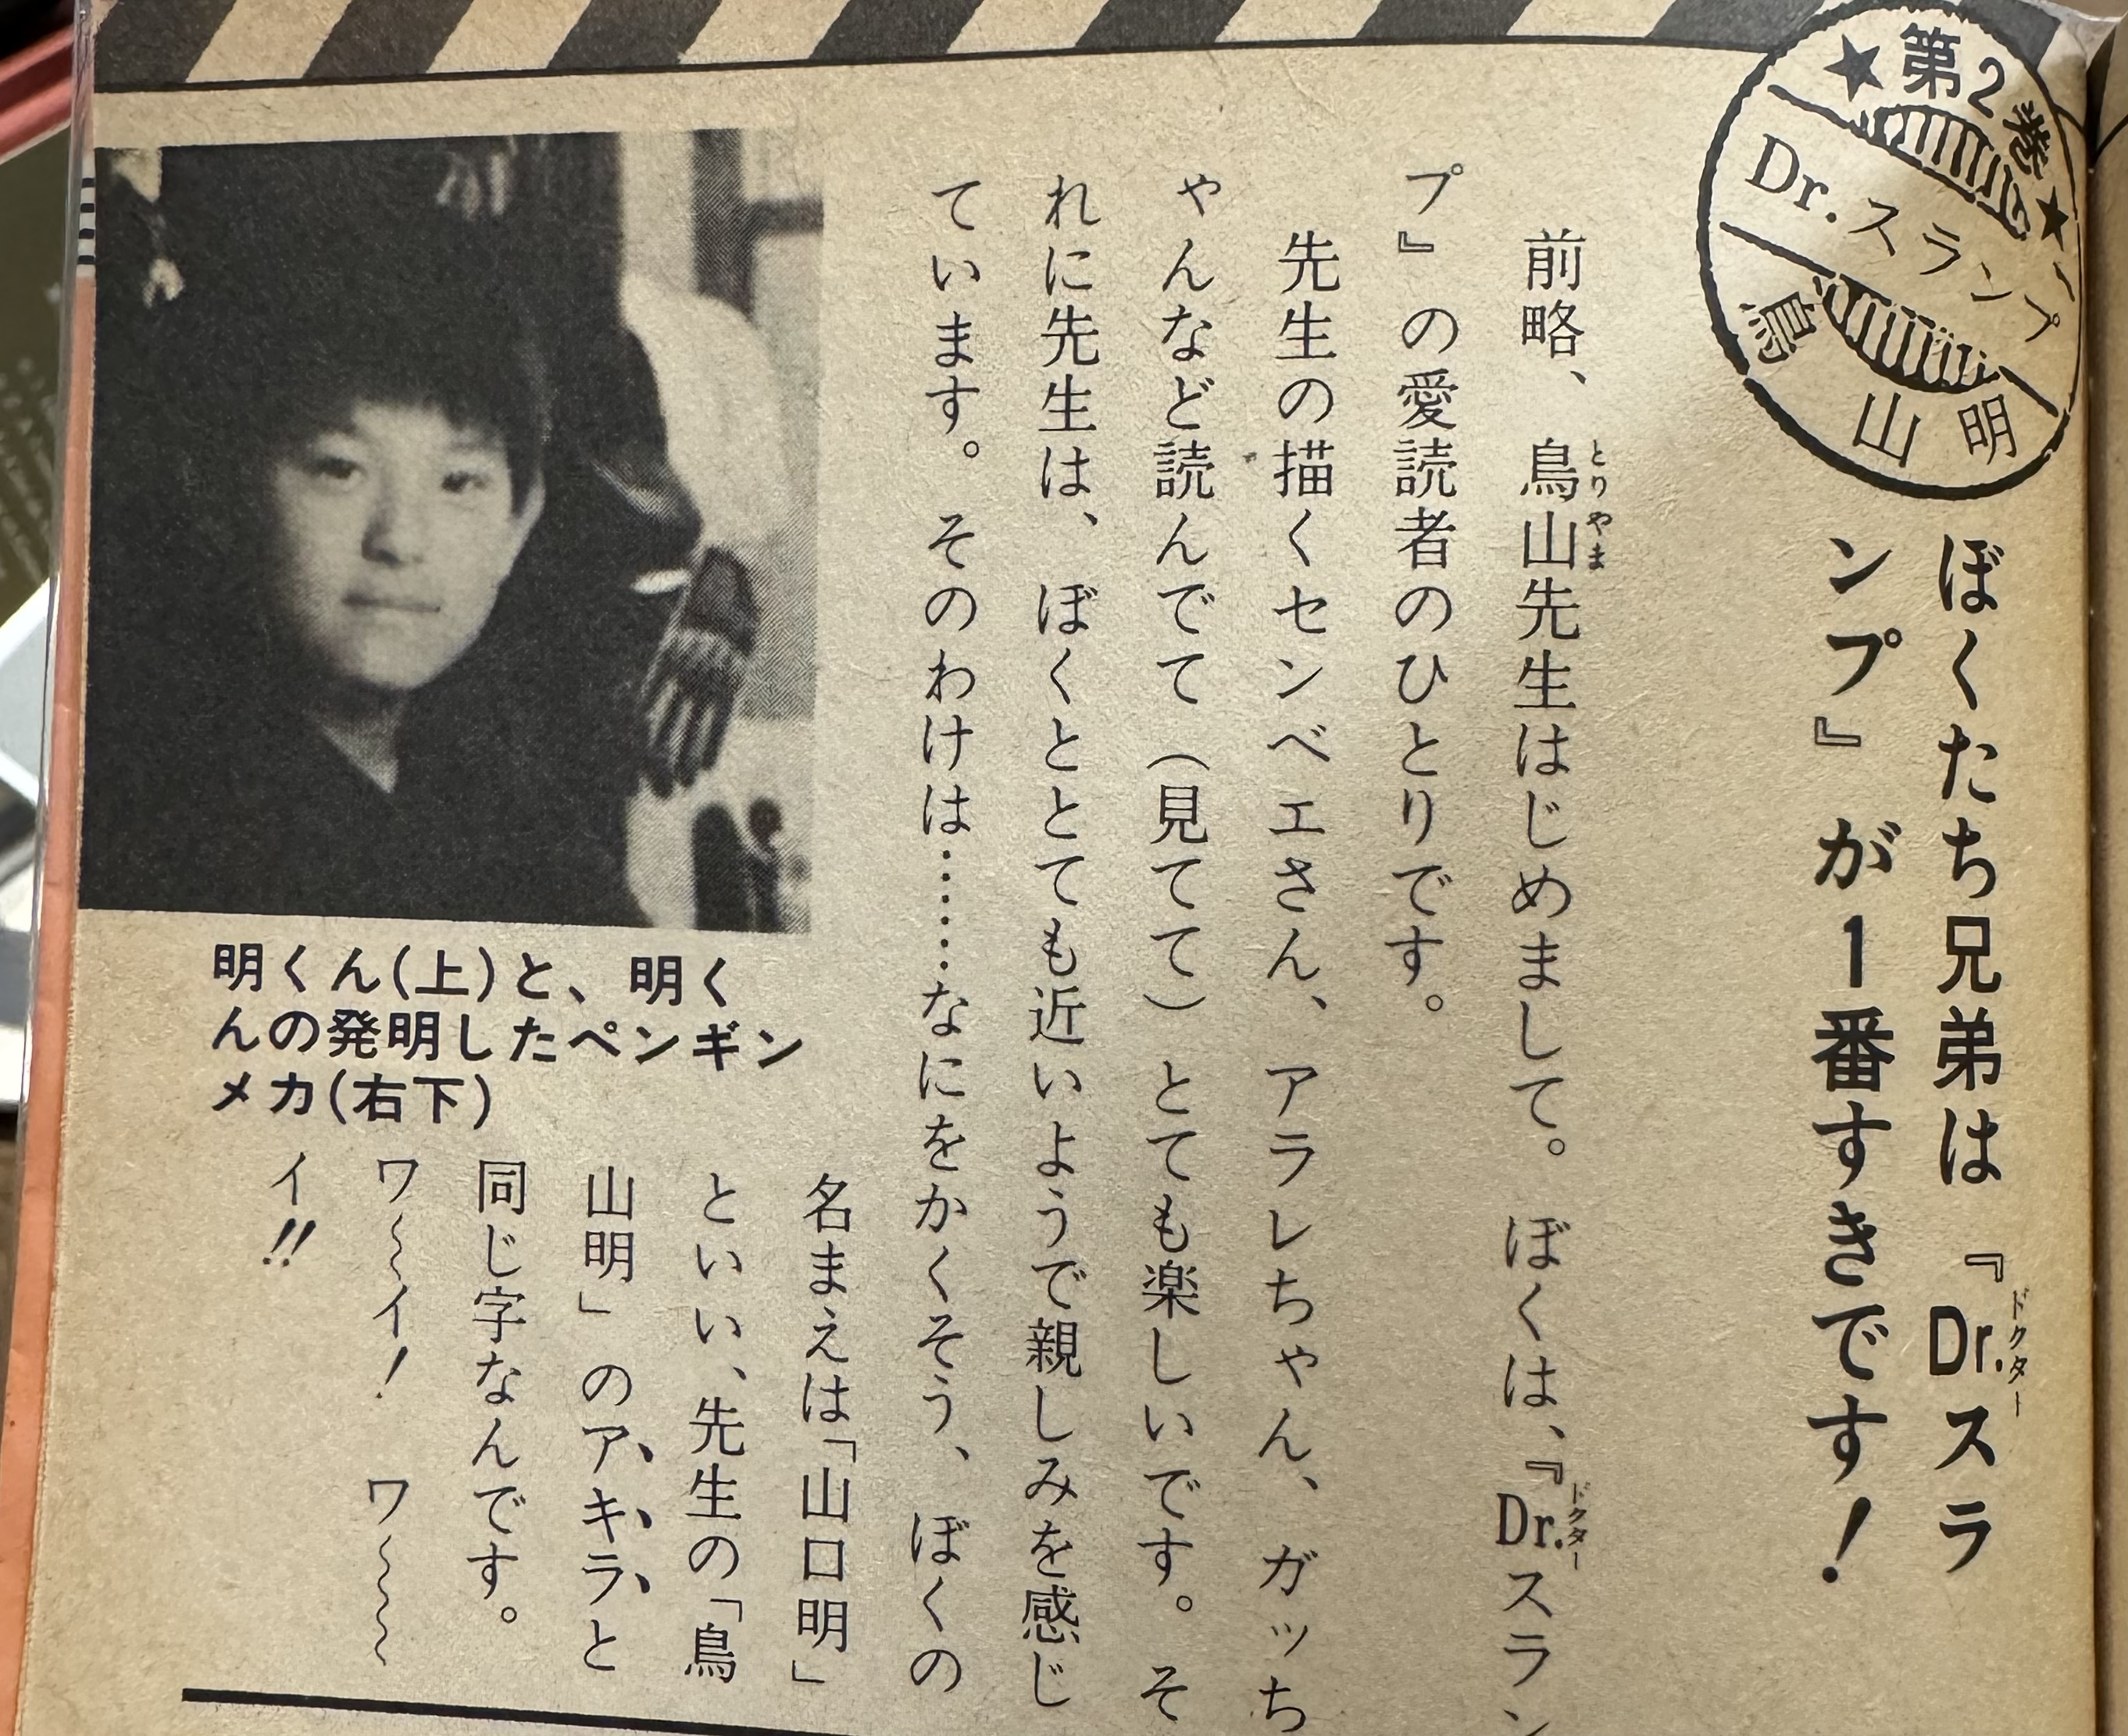 ★第2巻★
Dr.スランプ
鳥山明
ぼくたち兄弟は『Dr.スラ
ドクター
ンプ』が1番すきです！
前略、鳥山先生はじめまして。ぼくは、『Dr.スラン
とりやま
ドクター
プ』の愛読者のひとりです。
先生の描くセンベエさん、アラレちゃん、ガッち
ゃんなど読んでて（見てて）とても楽しいです。そ
れに先生は、ぼくととても近いようで親しみを感じ
ています。そのわけは……なにをかくそう、ぼくの
名まえは「山口明」
といい、先生の「鳥
山明」のアキラと
同じ字なんです。
ワ〜イ！　ワ〜〜
イ!!
明くん(上)と、明く
んの発明したペンギン
メカ(右下)